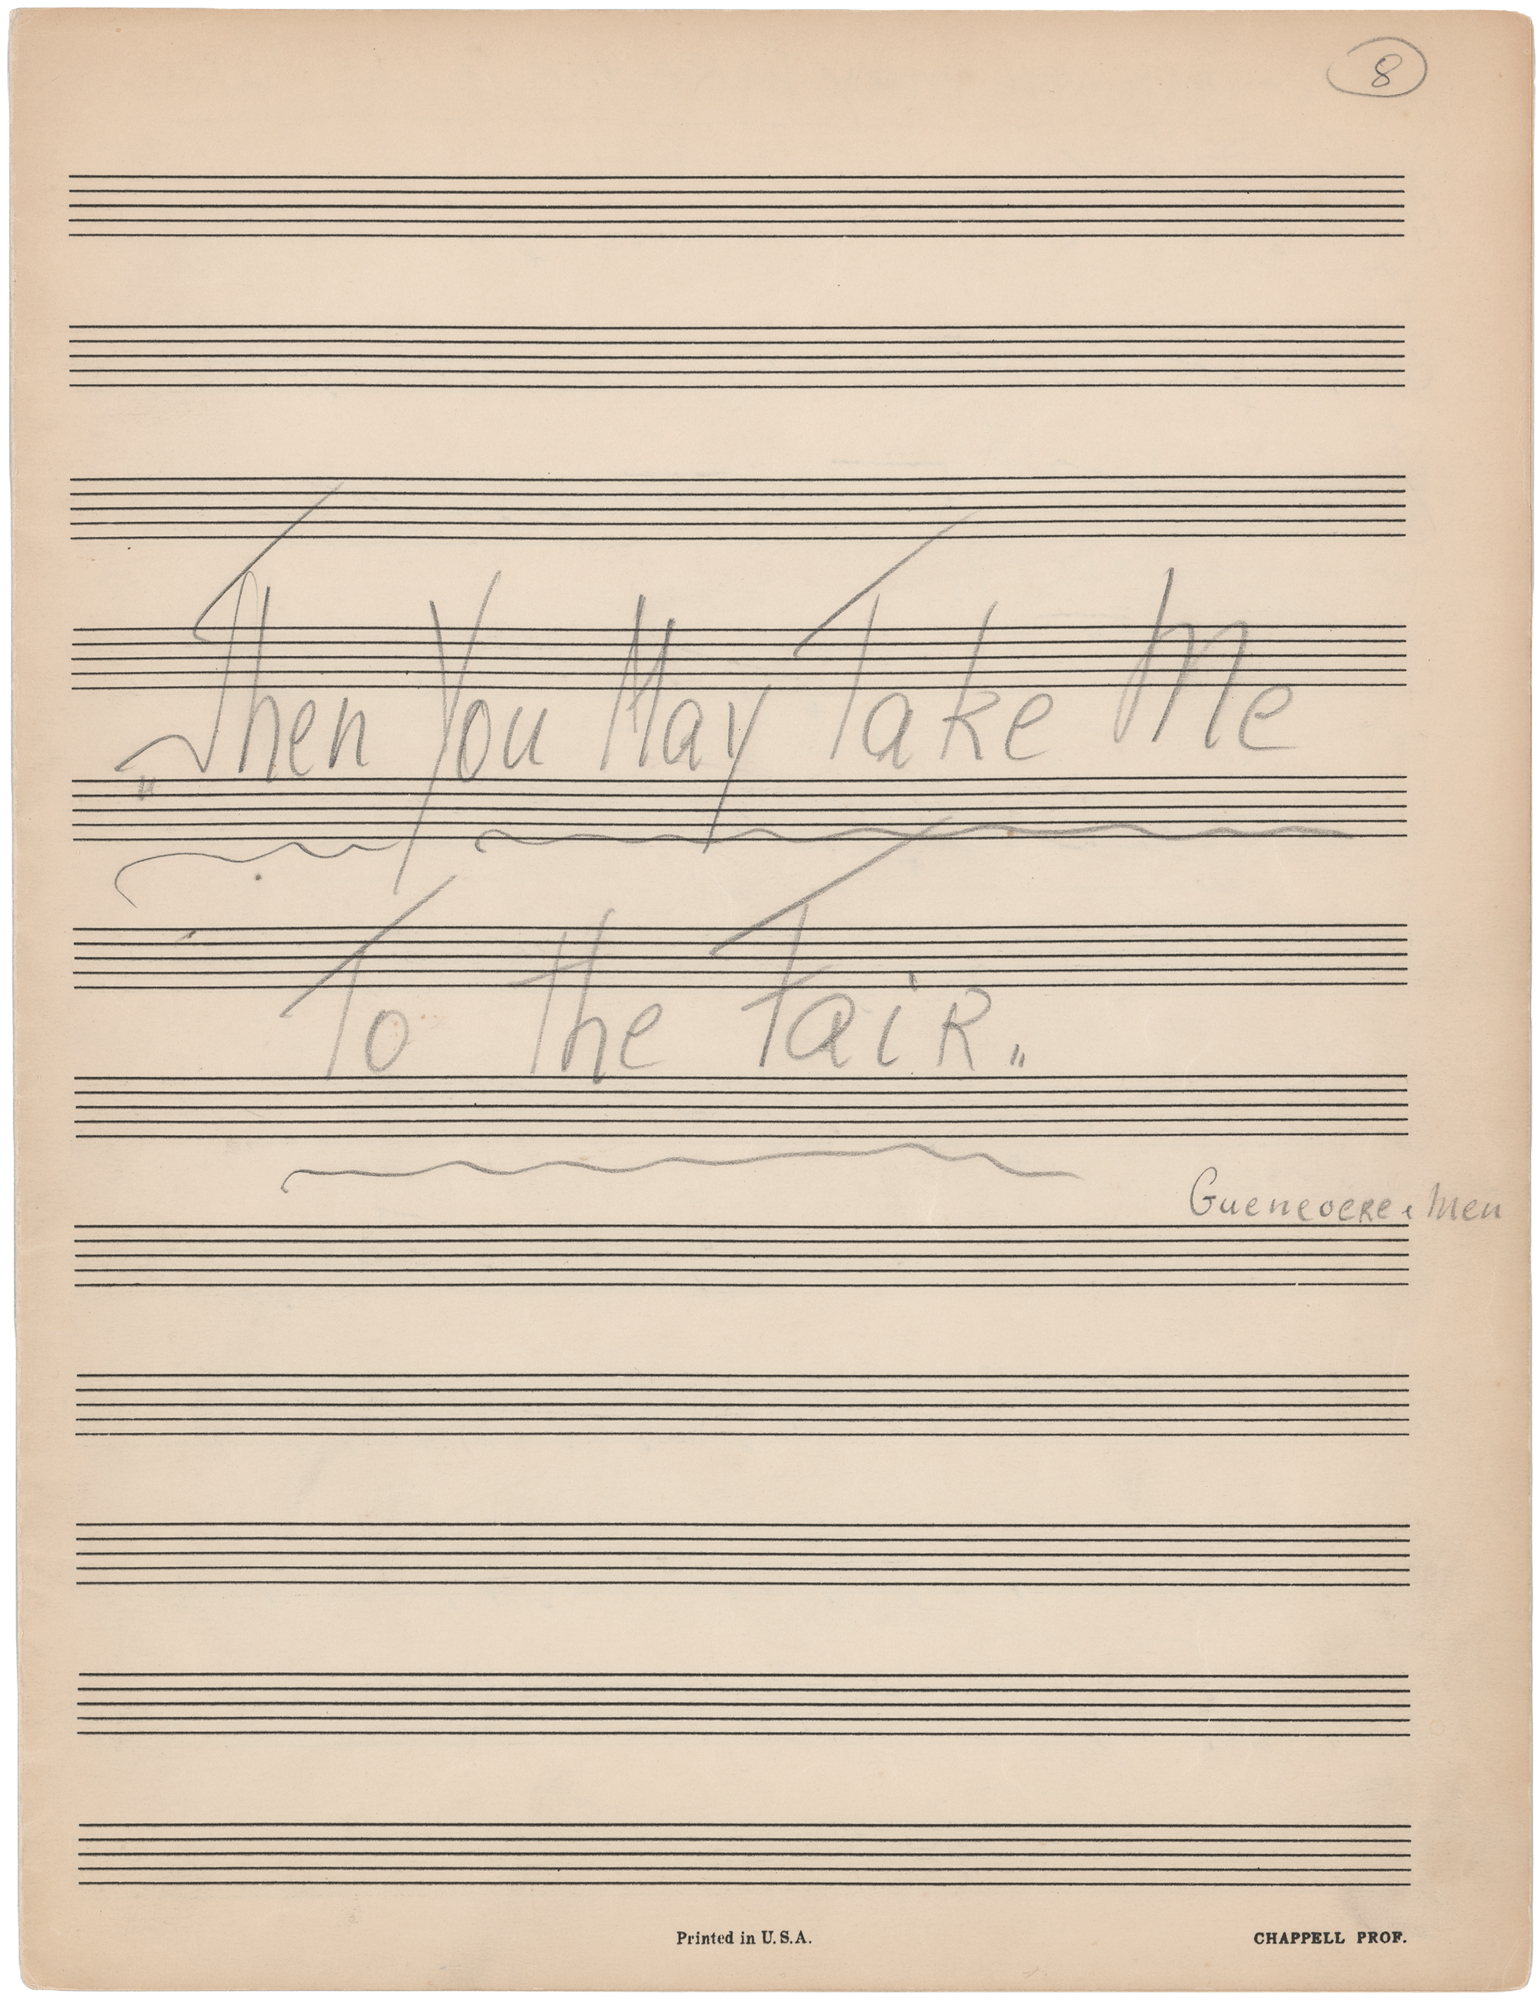 8
"Then You May Take Me
To The Fair"
Guenevere & Men
Printed in U.S.A.
CHAPPELL PROF.